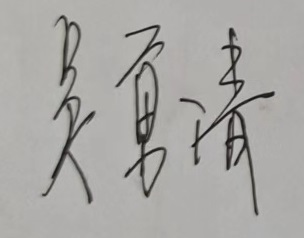 吴勇清